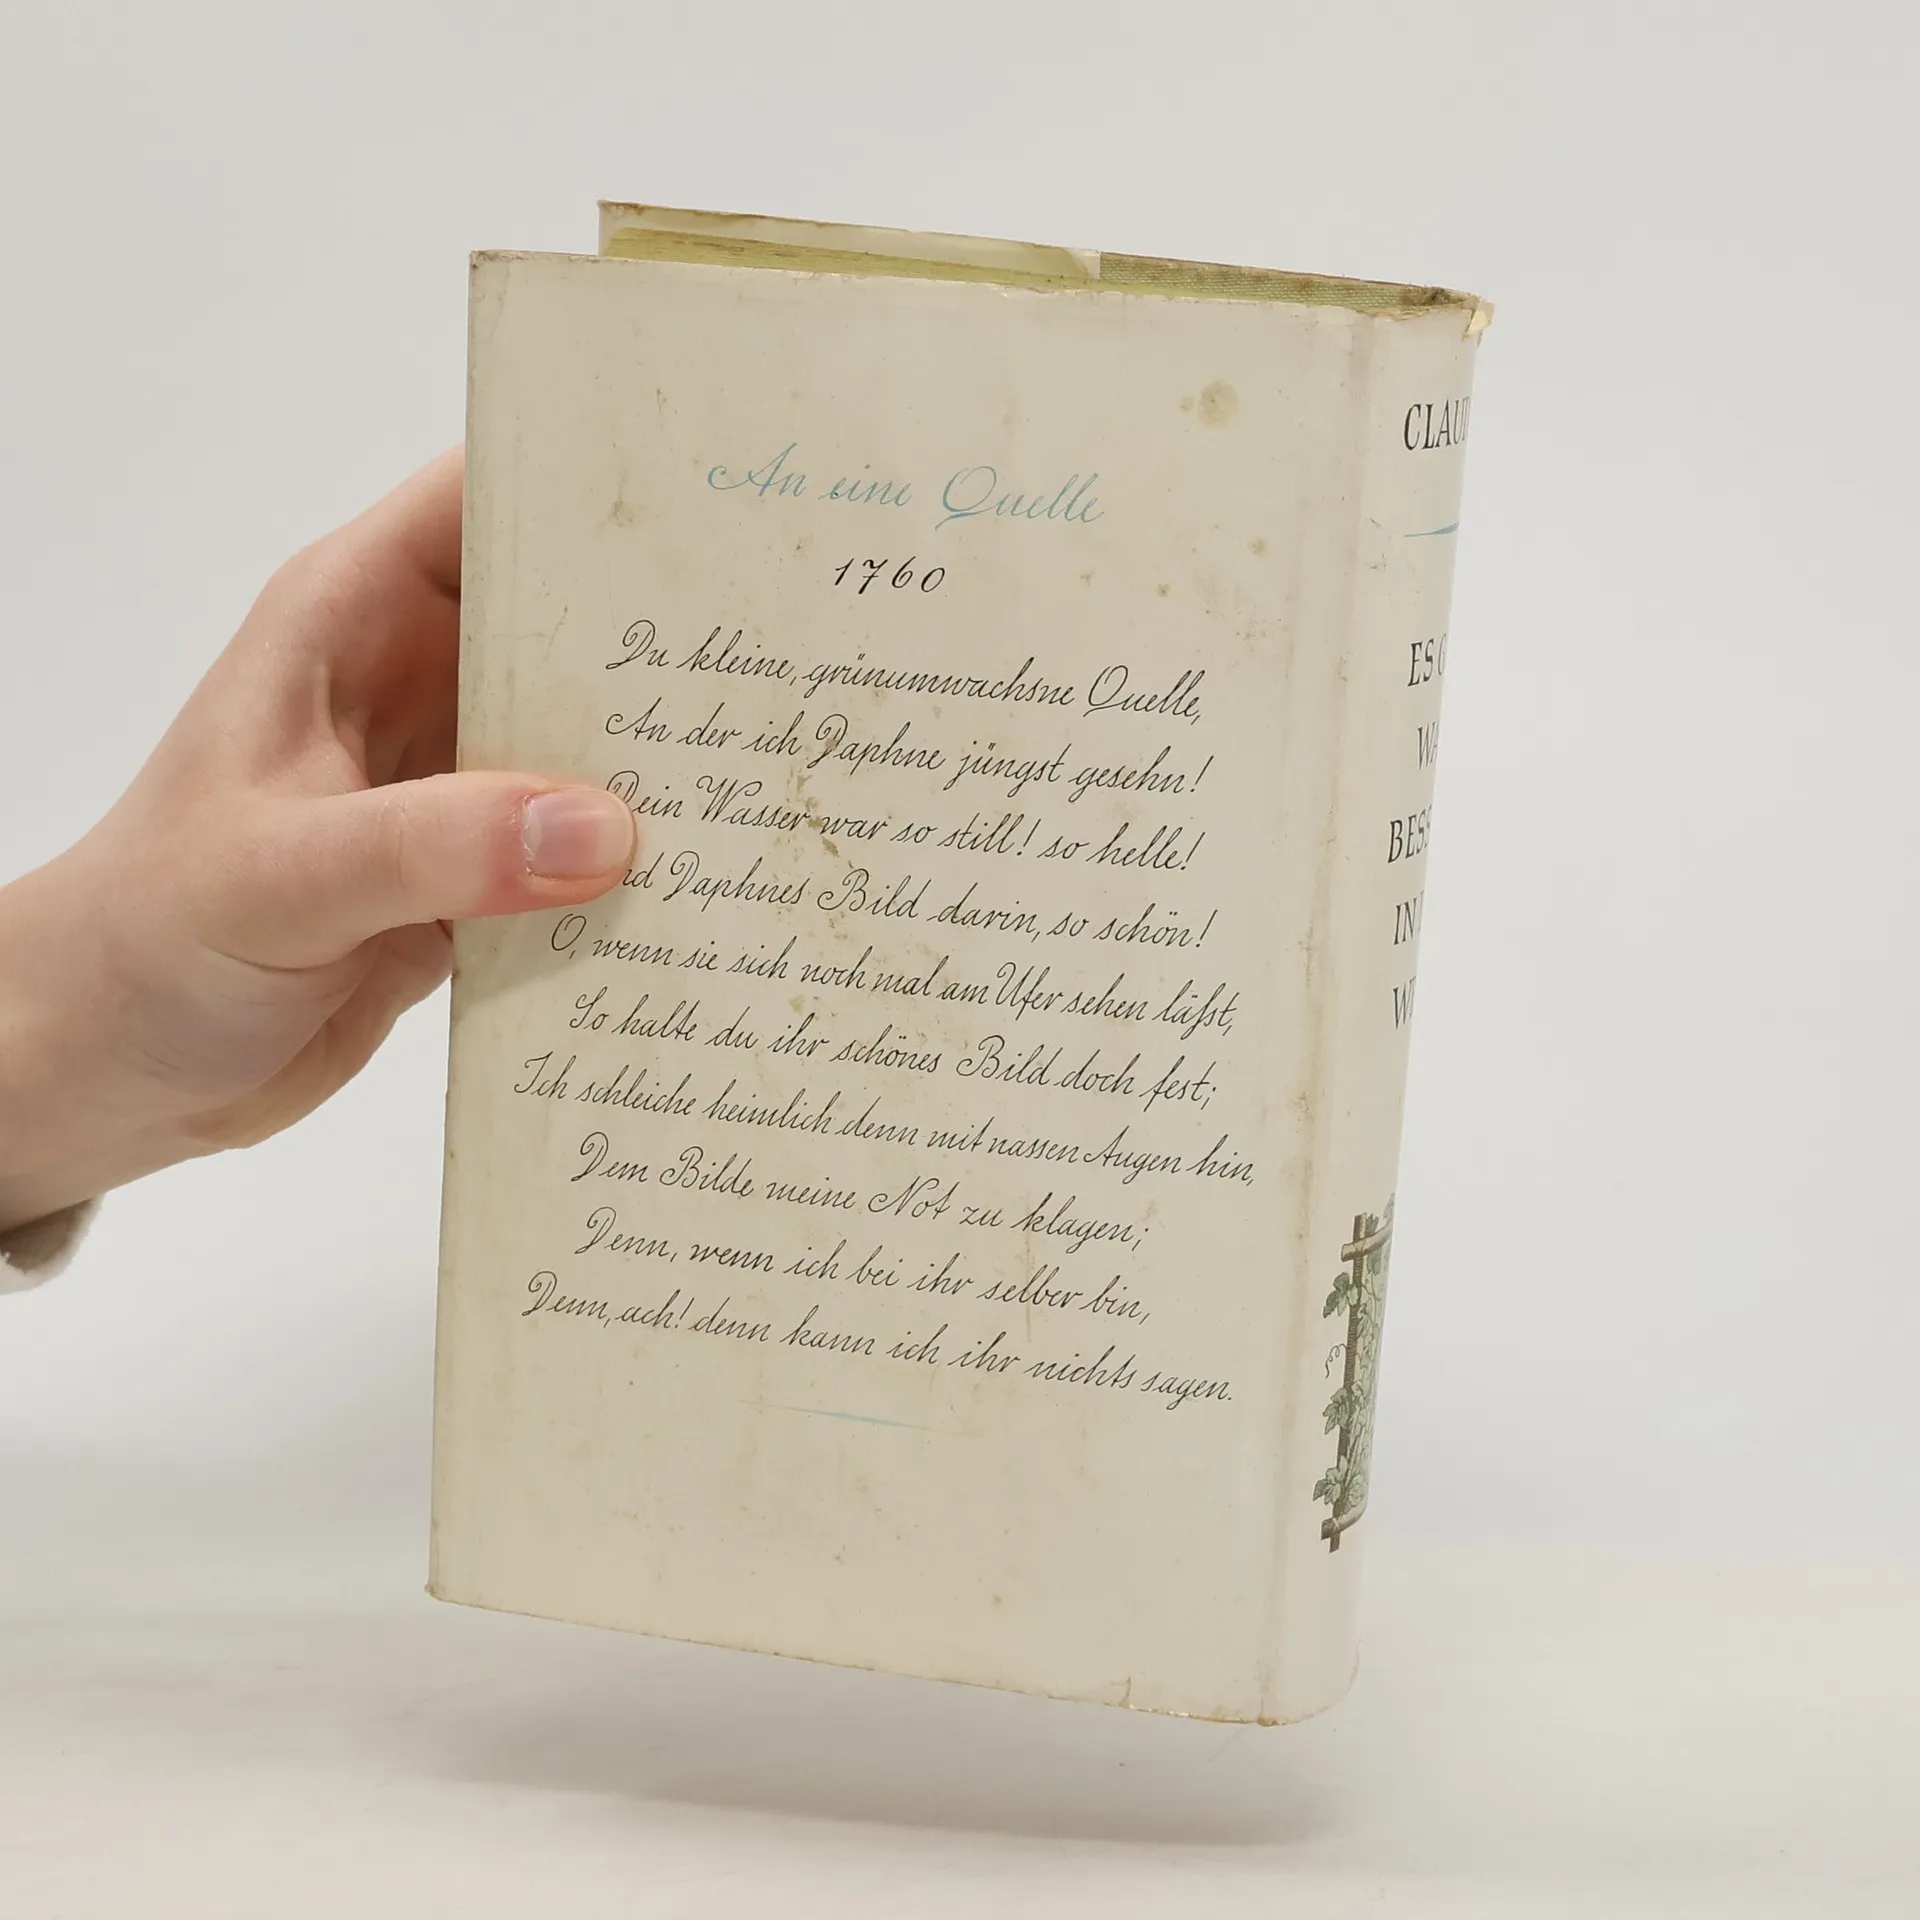 An eine Quelle
1760
Du kleine, grünumwachsne Quelle,
An der ich Daphne jüngst gesehn!
Dein Wasser war so still! so helle!
nd Daphnes Bild darin, so schön!
O, wenn sie sich noch mal am Ufer sehen läßt,
So halte du ihr schönes Bild doch fest;
Ich schleiche heimlich denn mit nassen Augen hin,
Dem Bilde meine Not zu klagen;
Denn, wenn ich bei ihr selber bin,
Denn, ach! denn kann ich ihr nichts sagen.
CLAU
ES G
WA
BESS
IN
W